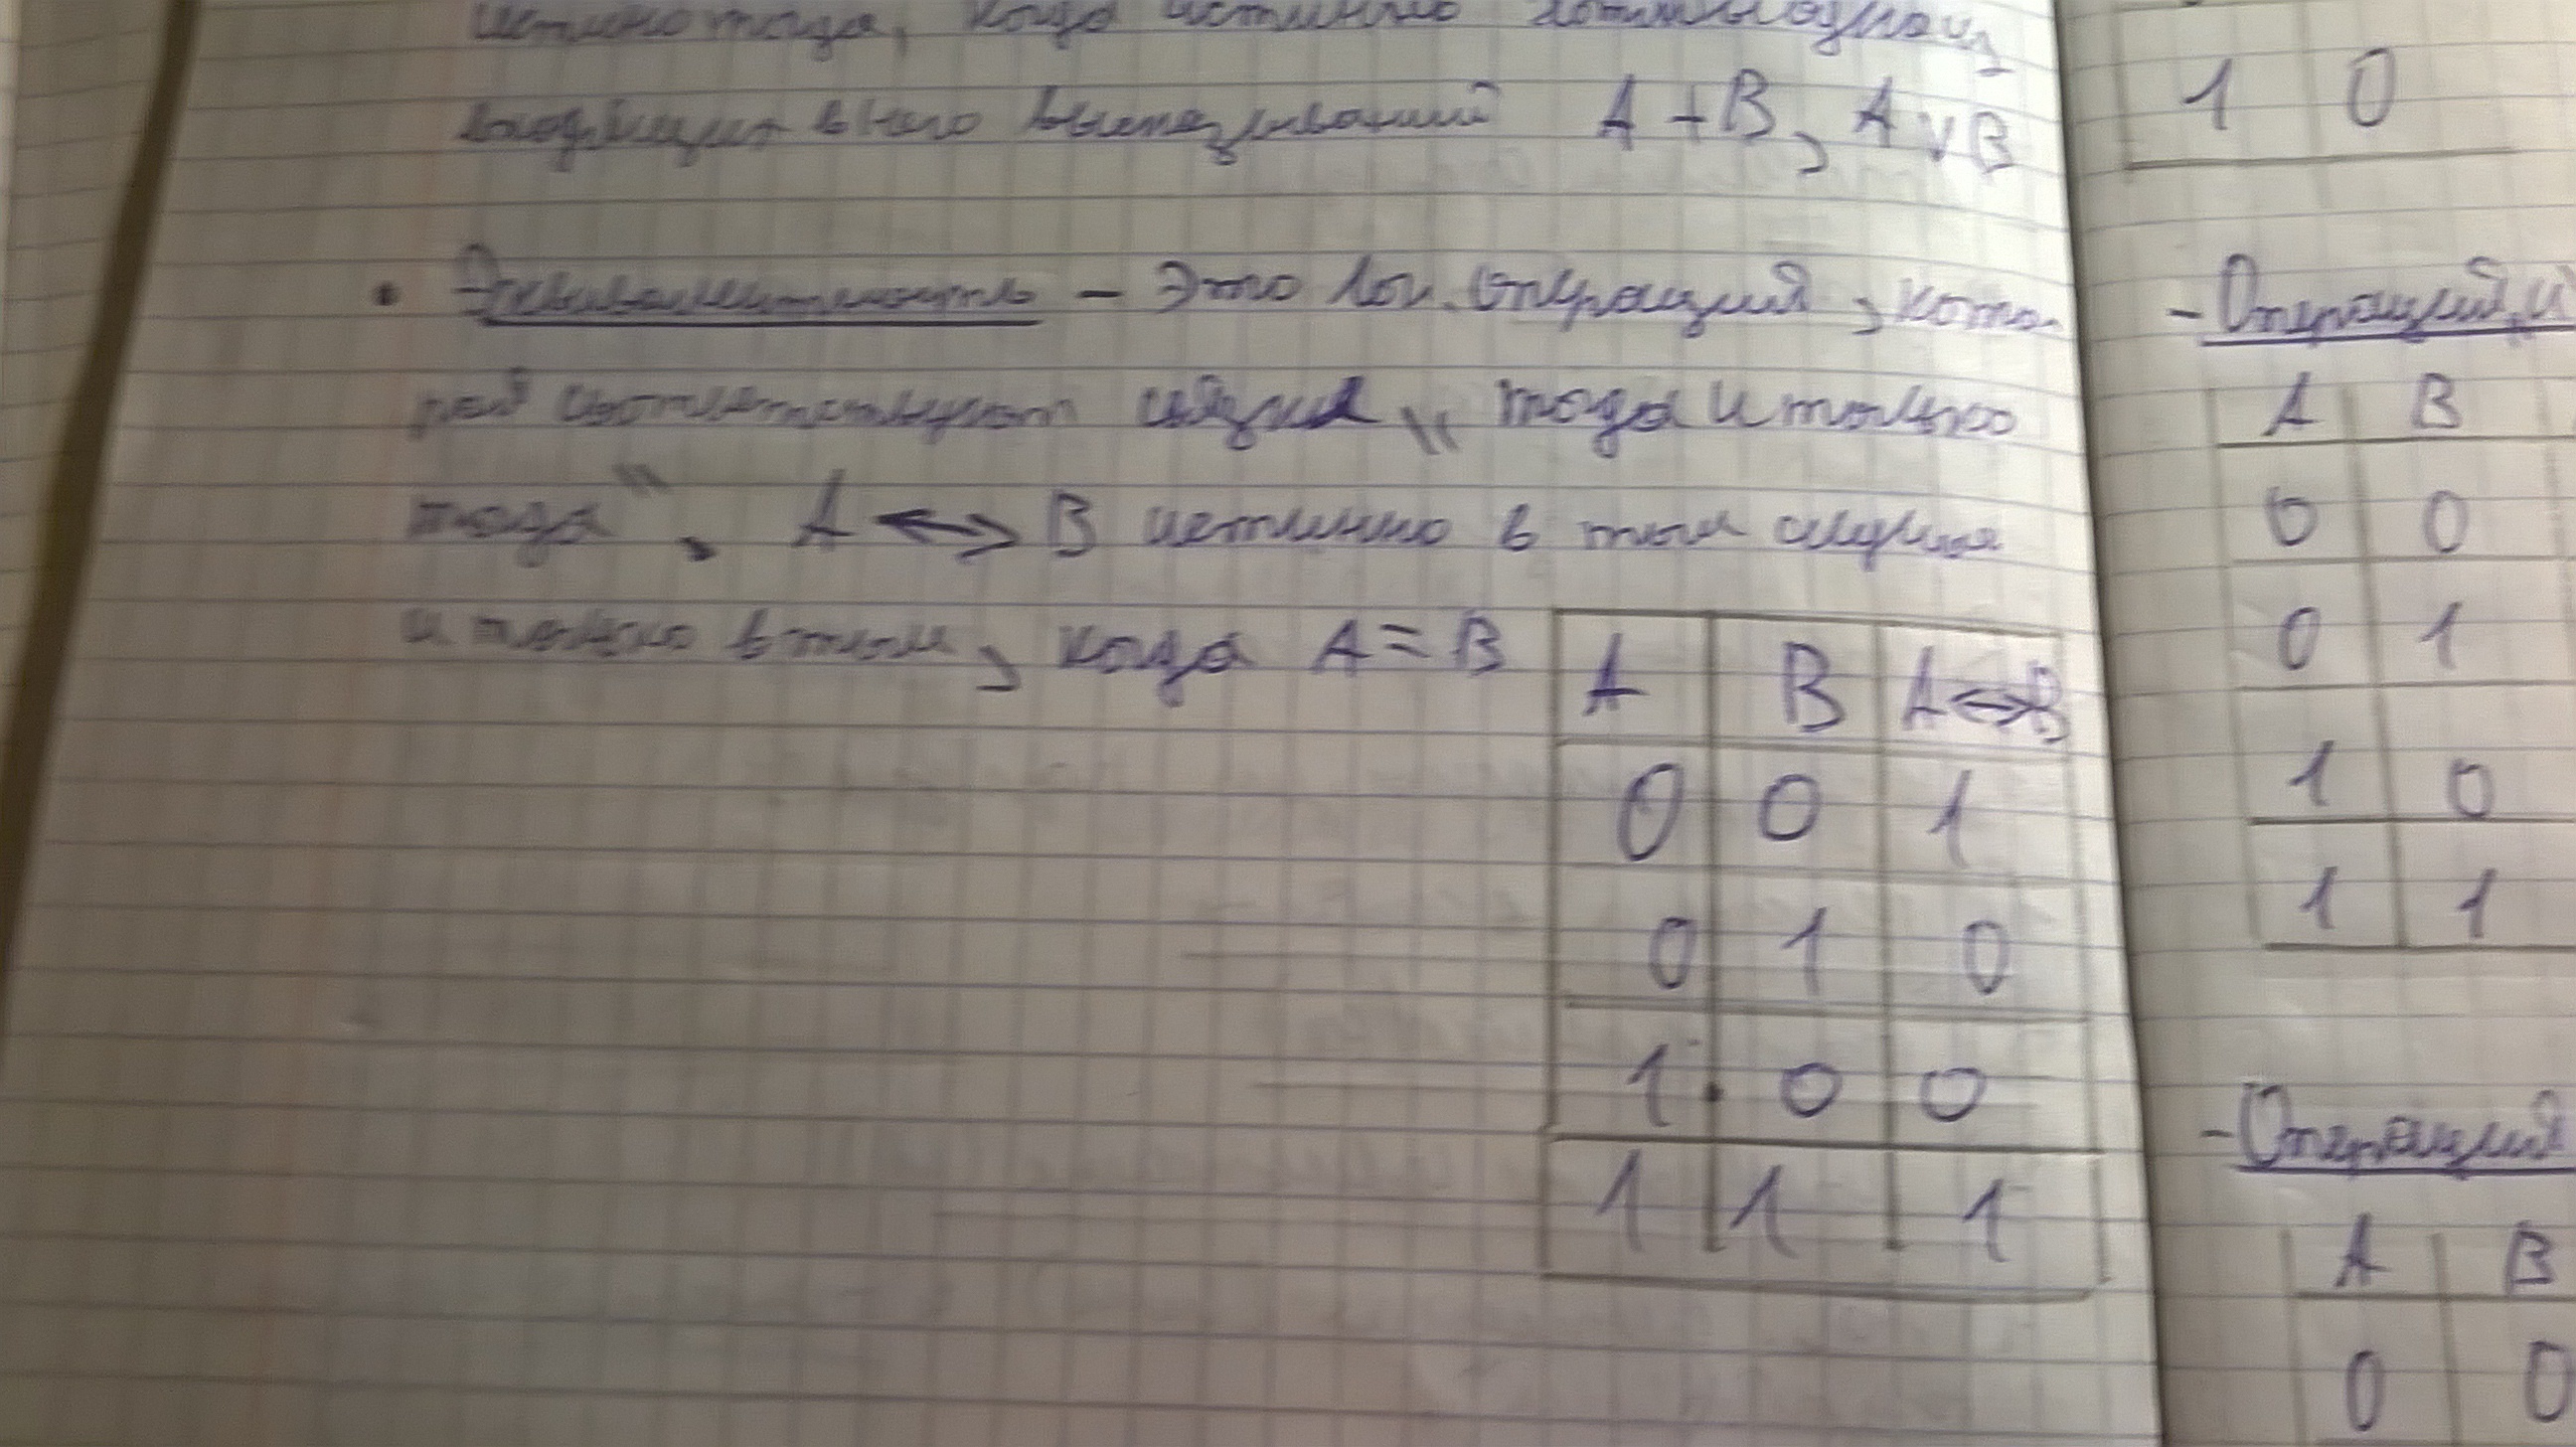 истинно тогда, когда истинно хотя бы одно из
входящих в него высказываний A + B, A ∨ B
• Эквивалентность – это лог. операция, кото-
рой соответствует связка „тогда и только
тогда". A ↔ B истинно в том случае
и только в том, когда A = B
A B A↔B
0 0 1
0 1 0
1 0 0
1 1 1
1 0
- Операция „И
A B
0 0
0 1
1 0
1 1
- Операция
A B
0 0